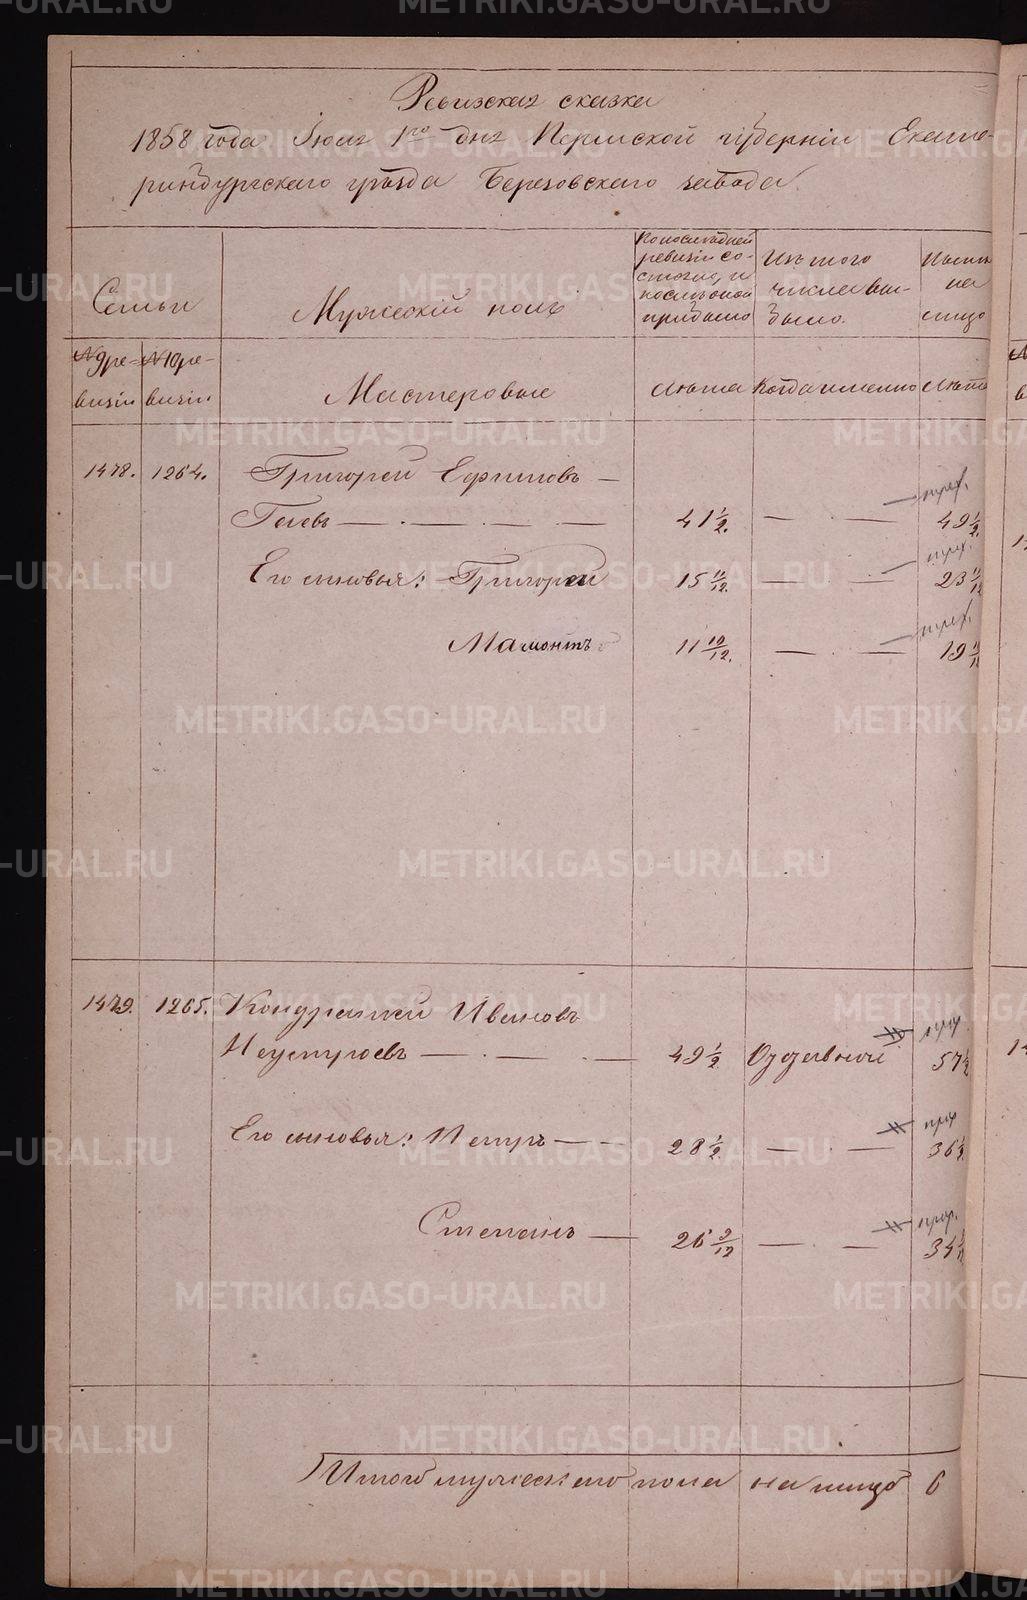 Ревизская сказка
1858 года Июня 1го дня Пермской губерніи Екате-
ринбургскаго уѣзда Березовскаго завода.
Семьи
Мужескій полъ
По последней ревизіи со-стояло, и послѣ оной прибыло
Изъ того числа вы-было.
Нынѣ на лицо
№ 9 ре-визіи
№ 10 ре-визіи
Мастеровые
Лѣта
Когда именно
Лѣта
1478. 1264. Григорей Ефимовъ —
Гелевъ — . — . — — 41 1/2. — . — 49 1/2
Его сыновья: Григорей 15 11/12. — — 23 11/12
Мамонтъ 11 10/12. — . — 19
1479. 1265. Кондратей Ивановъ
Неустроевъ — . — . — 49 1/2 57 1/2
Его сыновья: Петръ — — 28 1/2. — . — 36 1/2
Степанъ — 26 9/12 — . — 34
Итого мужескаго пола на лицо 6
METRIKI.GASO-URAL.RU